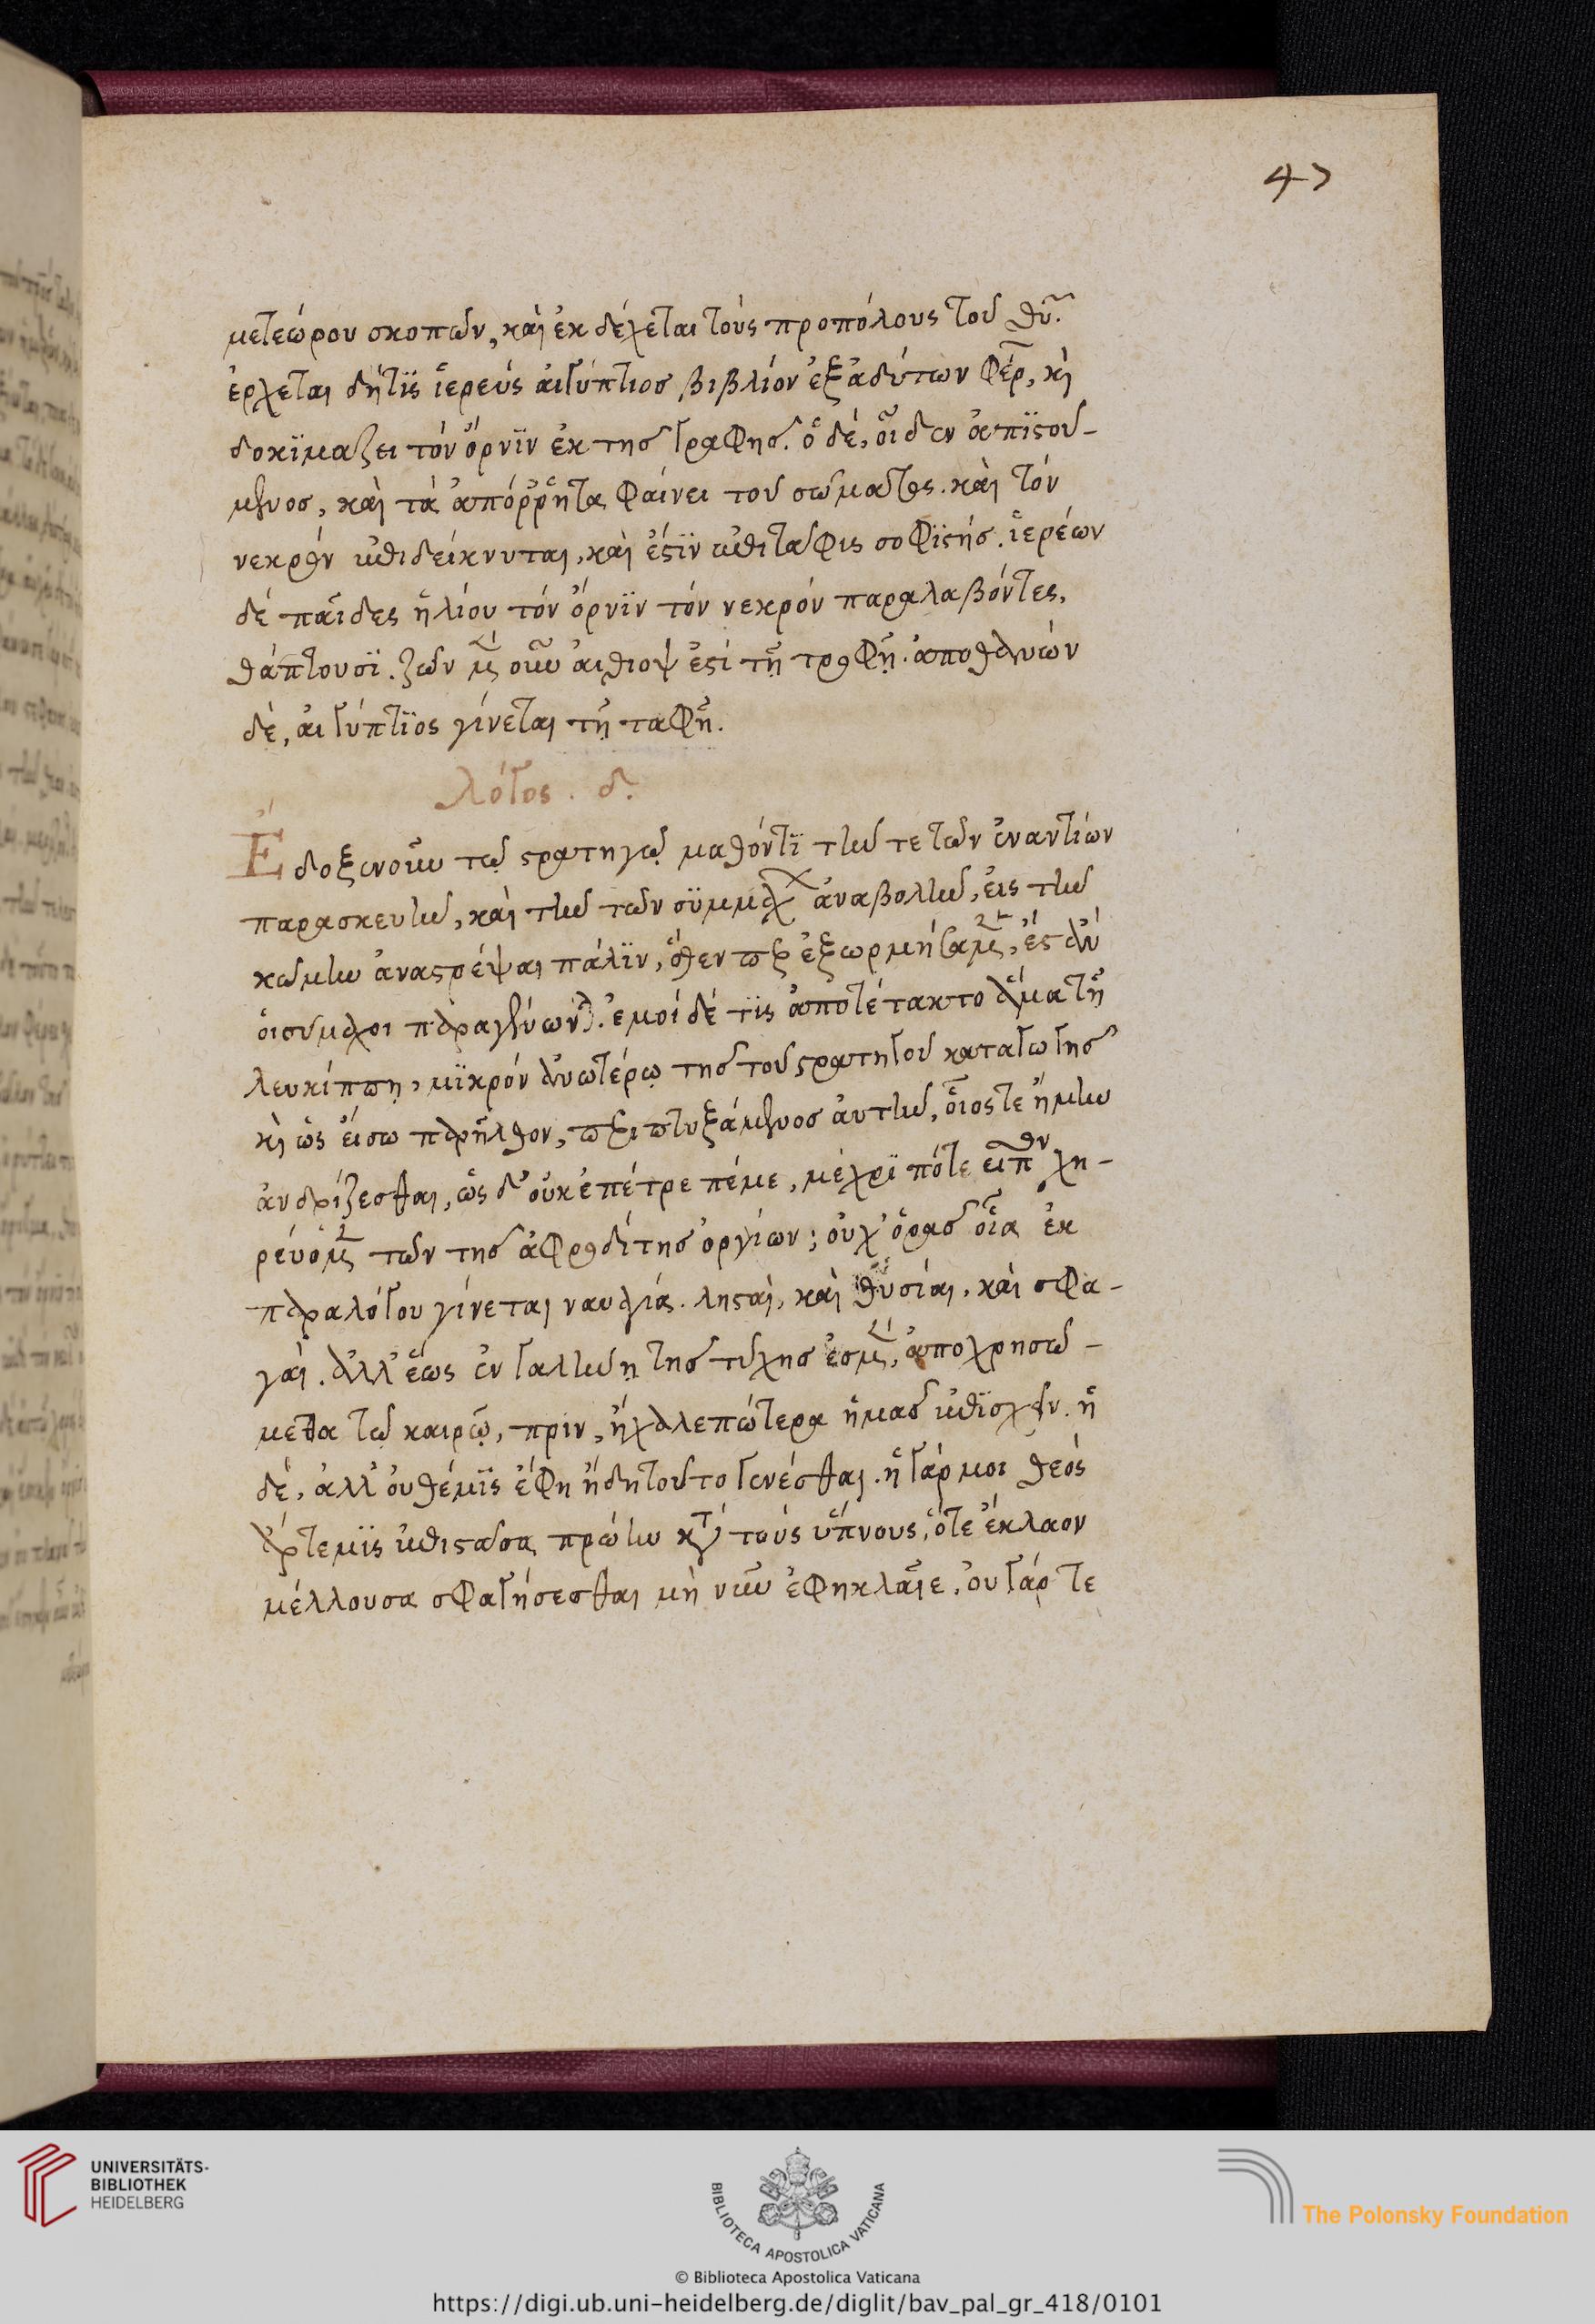 47
μετεώρου σκοπῶν, καὶ ἐκδέχεται τοὺς προπόλους τοῦ θῦ.
ἔρχεται δή τϊς ἱερεύς αἰγύπτιος βιβλίον ἐξ ἀδύτων φέρ, κὶ
δοκϊμαζει τόν ὄρνϊν ἐκ τῆς γραφῆς. ὁ δέ, οἶδεν ἀπϊστού-
μενος, καὶ τὰ ἀπόρρητα φαίνει τοῦ σώματος. καὶ τόν
νεκρόν ἐπιδείκνυται, καὶ ἔστϊν ἐπιτάφις σοφϊστής. ἱερέων
δέ παῖδες ἡλίου τόν ὄρνϊν τόν νεκρόν παραλαβόντες,
θάπτουσϊ. ζῶν μὲν οὖν αἰθιοψ ἐστί τῇ τροφῇ. ἀποθανών
δέ, αἰγύπτϊος γίνεται τῇ ταφῇ.
λόγος. δ.
Ἔδοξεν οὖν τῷ στρατηγῷ μαθόντϊ τὴν τε τῶν ἐναντίων
παρασκευὴν, καὶ τὴν τῶν σϋμμάχ ἀναβολὴν, εἰς τὴν
κώμην ἀναστρέψαι πάλϊν, ὅθεν περ ἐξωρμήσαμεν, ἔστ ἂν
οἱ σύμαχοι παραγένωνται. ἐμοί δέ τϊς ἀποτέτακτο ἅμα τῇ
λευκίππῃ, μϊκρόν ἀνωτέρω τῆς τοῦ στρατηγοῦ καταγωγῆς
κὶ ὡς εἴσω παρῆλθον, περιπτυξάμενος αὐτὴν, οἷος τε ἤμην
ἀνδρίζεσθαι, ὡς δ' οὐκ ἐπέτρεπέ με, μέχρϊ πότε εἶπον χη-
ρεύομεν τῶν τῆς ἀφροδίτης ὀργίων; οὐχ' ὁρᾷς οἷα ἐκ
παραλόγου γίνεται ναυαγία. λησταὶ, καὶ θυσίαι, καὶ σφα-
γαί. ἀλλ' ἕως ἐν γαλήνῃ τῆς τύχης ἐσμέν, ἀποχρησώ-
μεθα τῷ καιρῷ, πριν, ἢ χαλεπώτερα ἡμᾶς ἐπϊσχεῖν. ἡ
δέ, ἀλλ' οὐ θέμϊς ἔφη ἤδη τοῦτο γενέσθαι. ἡ γάρ μοι θεός
ἄρτεμϊς ἐπιστᾶσα πρώην κατά τοὺς ὕπνους, ὅτε ἔκλαον
μέλλουσα σφαγήσεσθαι μὴ νῦν ἔφη κλαῖε, οὐ γάρ τε
UNIVERSITÄTS-
BIBLIOTHEK
HEIDELBERG
BIBLIOTECA APOSTOLICA VATICANA
The Polonsky Foundation
© Biblioteca Apostolica Vaticana
https://digi.ub.uni-heidelberg.de/diglit/bav_pal_gr_418/0101